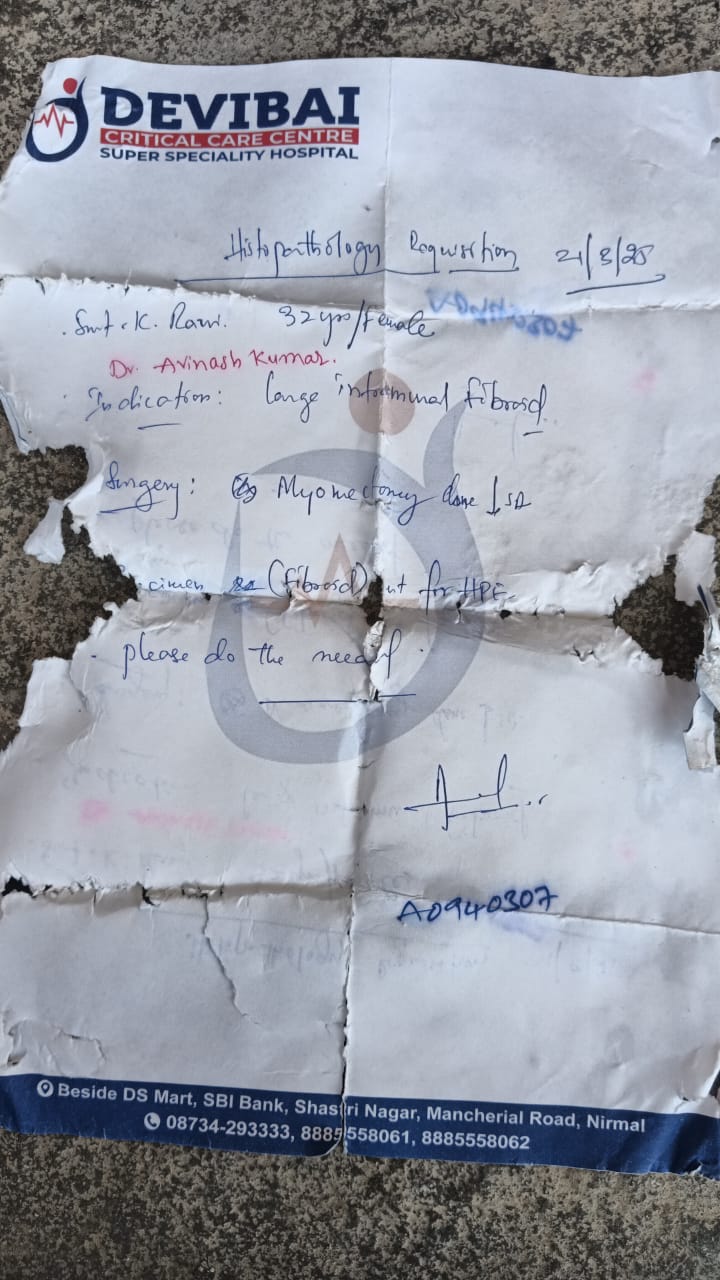 DEVIBAI
CRITICAL CARE CENTRE
SUPER SPECIALITY HOSPITAL
Histopathology Requisition 21/3/25
Smt. K. Rani. 32yrs/Female
Dr. Avinash Kumar.
Indication: large intramural fibroid
Surgery: Myomectomy done ↓ SA
cimen (fibroid) nt for HPE.
please do the needful.
A0940307
Beside DS Mart, SBI Bank, Shastri Nagar, Mancherial Road, Nirmal
08734-293333, 8885558061, 8885558062